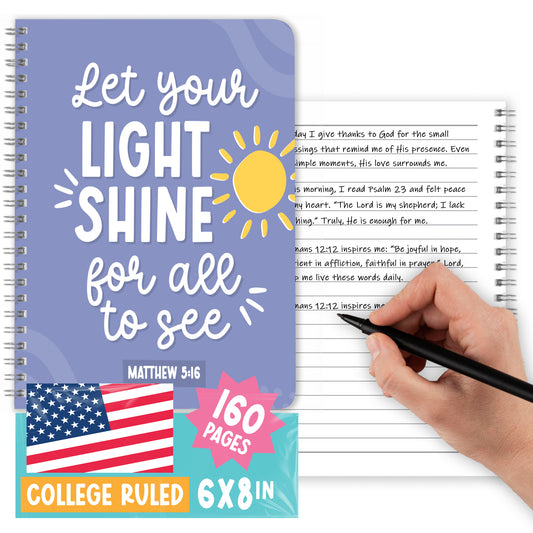 Let your
LIGHT
SHINE
for all
to see
MATTHEW 5:16
160
PAGES
COLLEGE RULED 6X8 IN
day I give thanks to God for the small
ssings that remind me of His presence. Even
simple moments, His love surrounds me.
is morning, I read Psalm 23 and felt peace
my heart. "The Lord is my shepherd; I lack
hing." Truly, He is enough for me.
mans 12:12 inspires me: "Be joyful in hope,
tient in affliction, faithful in prayer." Lord,
p me live these words daily.
mans 12:12 inspires me